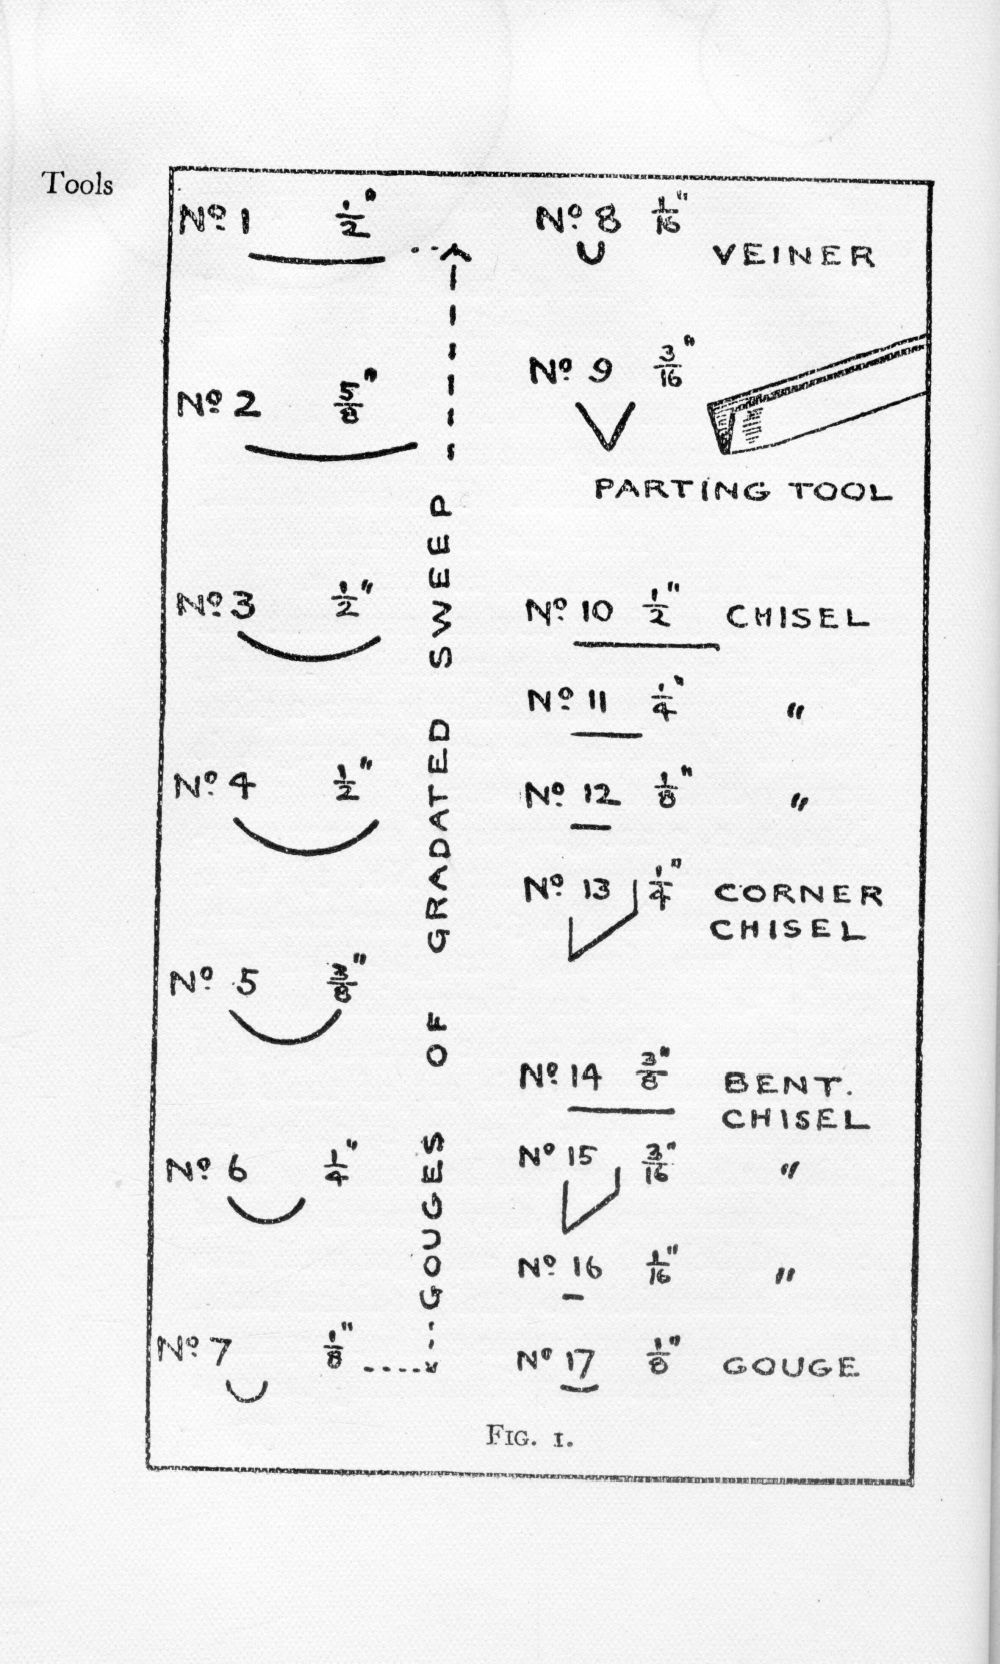 Tools
Nº 1 1/2"
Nº 2 5/8"
Nº 3 1/2"
Nº 4 1/2"
Nº 5 3/8"
Nº 6 1/4"
Nº 7 1/8"
GOUGES OF GRADATED SWEEP
Nº 8 1/16"
VEINER
Nº 9 3/16"
PARTING TOOL
Nº 10 1/2" CHISEL
Nº 11 1/4" "
Nº 12 1/8" "
Nº 13 1/4" CORNER
CHISEL
Nº 14 3/8" BENT.
CHISEL
Nº 15 3/16" "
Nº 16 1/16" "
Nº 17 1/8" GOUGE
FIG. 1.